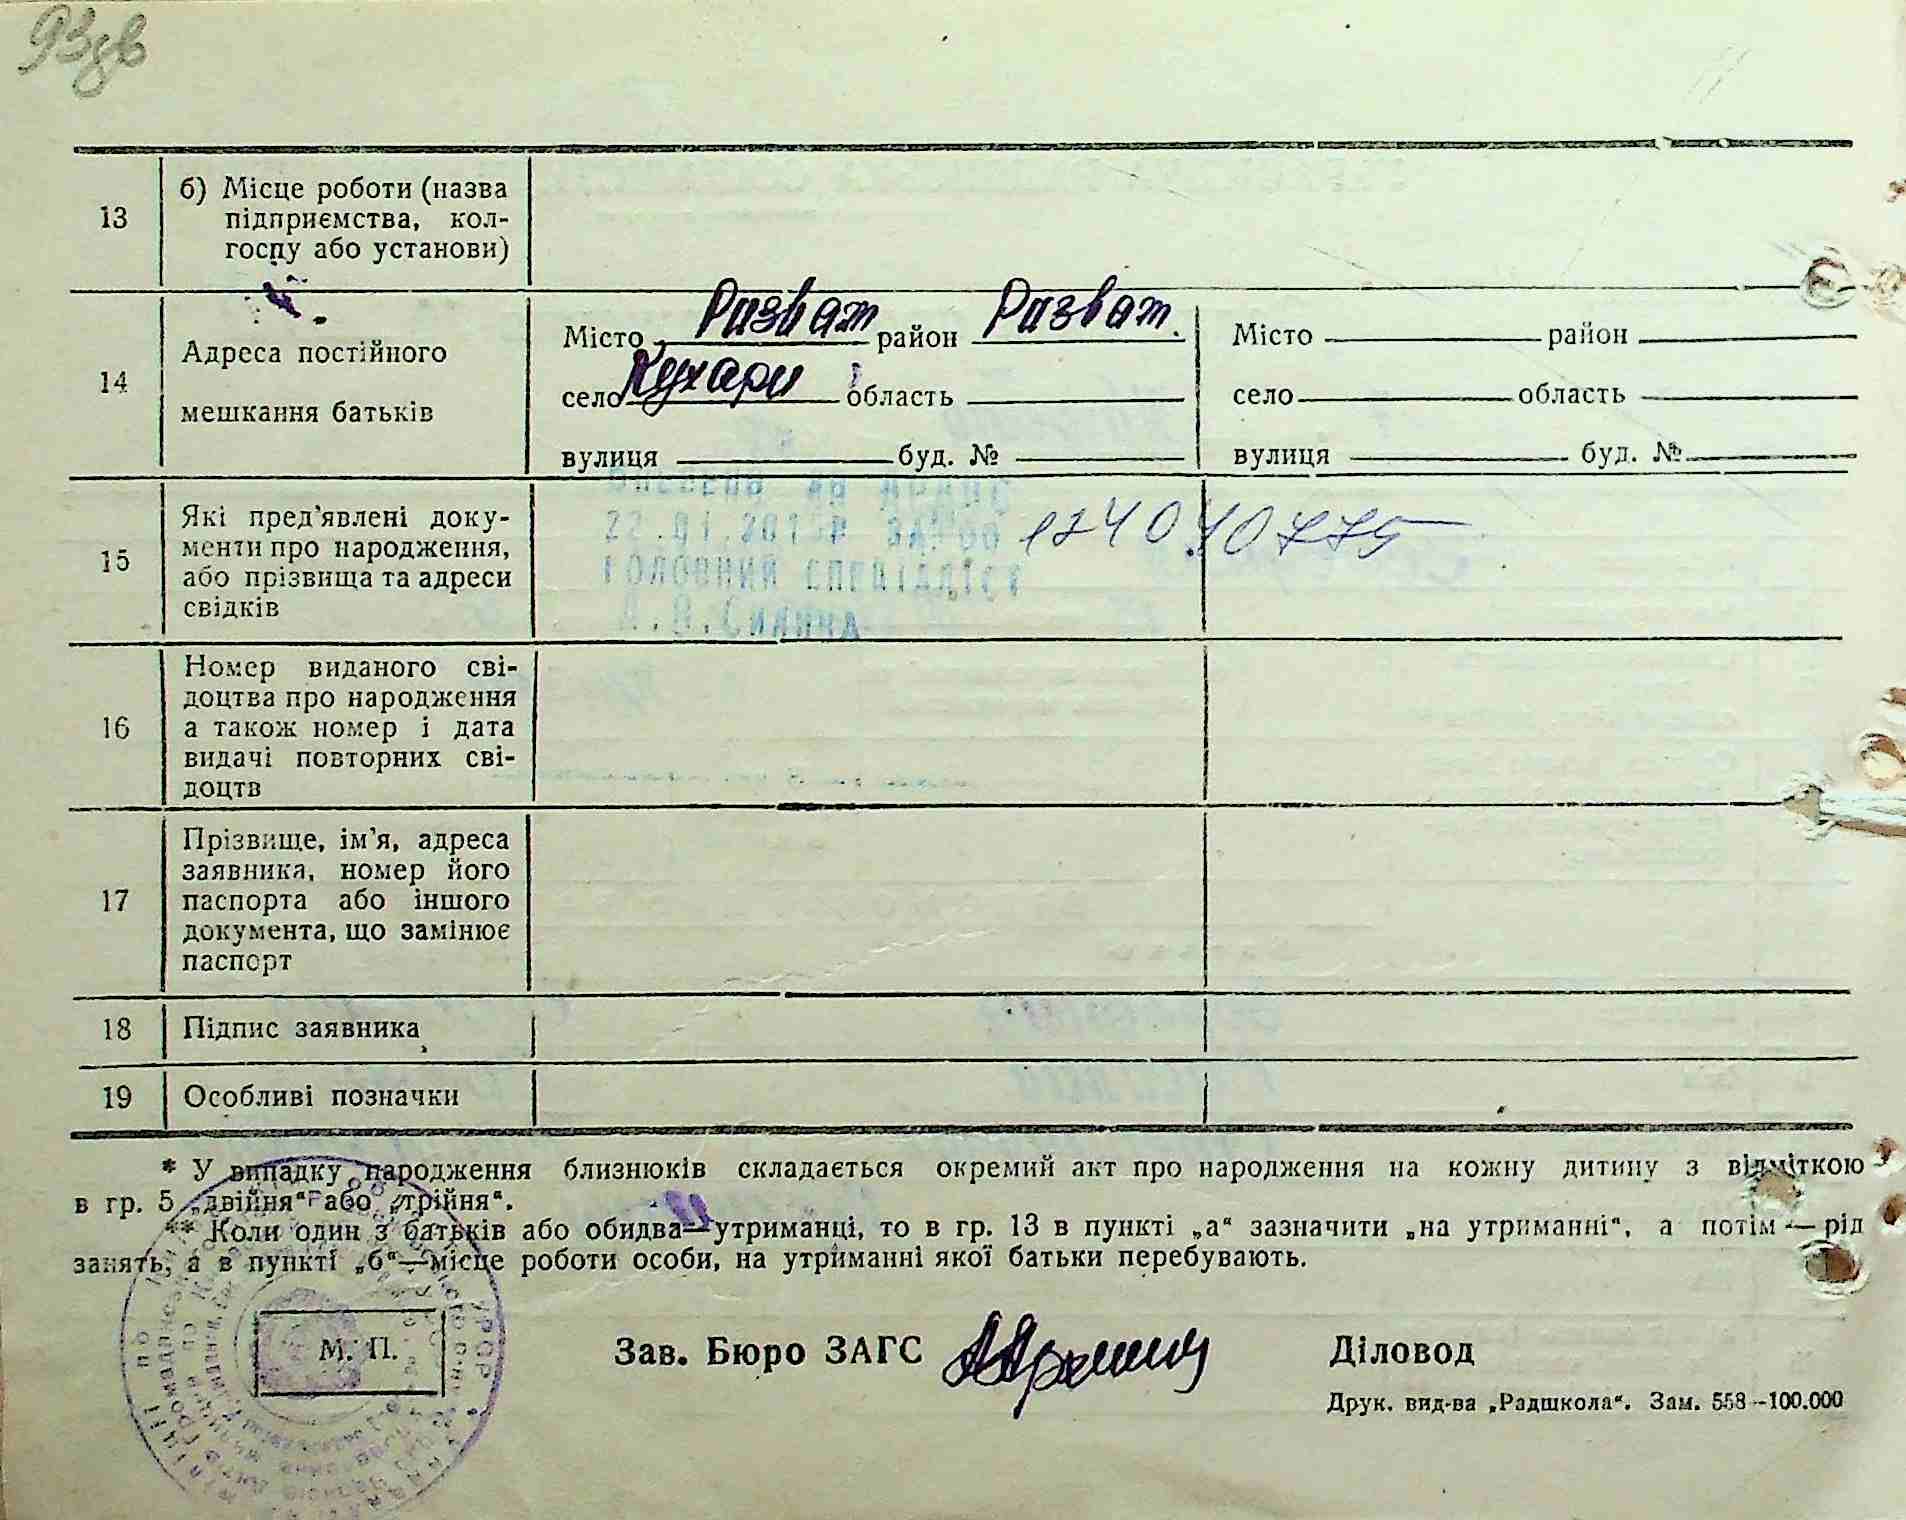 93зв
13
б) Місце роботи (назва
підприємства, кол-
госпу або установи)
14
Адреса постійного
мешкання батьків
Місто Розваж район Розваж.
село Кухари область
вулиця буд. №
Місто район
село область
вулиця буд. №
15
Які пред'явлені доку-
менти про народження,
або прізвища та адреси
свідків
22.01.201
головний спеціаліст
16
Номер виданого сві-
доцтва про народження
а також номер і дата
видачі повторних сві-
доцтв
17
Прізвище, ім'я, адреса
заявника, номер його
паспорта або іншого
документа, що замінює
паспорт
18
Підпис заявника
19
Особливі позначки
* У випадку народження близнюків складається окремий акт про народження на кожну дитину з відміткою
в гр. 5 „двійня“ або „трійня“.
** Коли один з батьків або обидва—утриманці, то в гр. 13 в пункті „а“ зазначити „на утриманні“, а потім — рід
занять, а в пункті „б“—місце роботи особи, на утриманні якої батьки перебувають.
М. П.
Зав. Бюро ЗАГС
Діловод
Друк. вид-ва „Радшкола“. Зам. 558—100.000